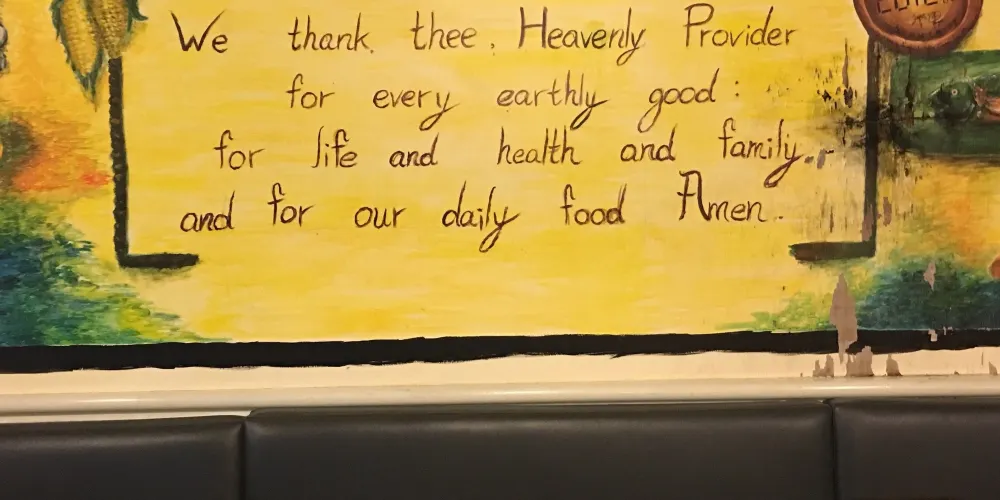 We thank thee, Heavenly Provider
for every earthly good:
for life and health and family.
and for our daily food Amen.